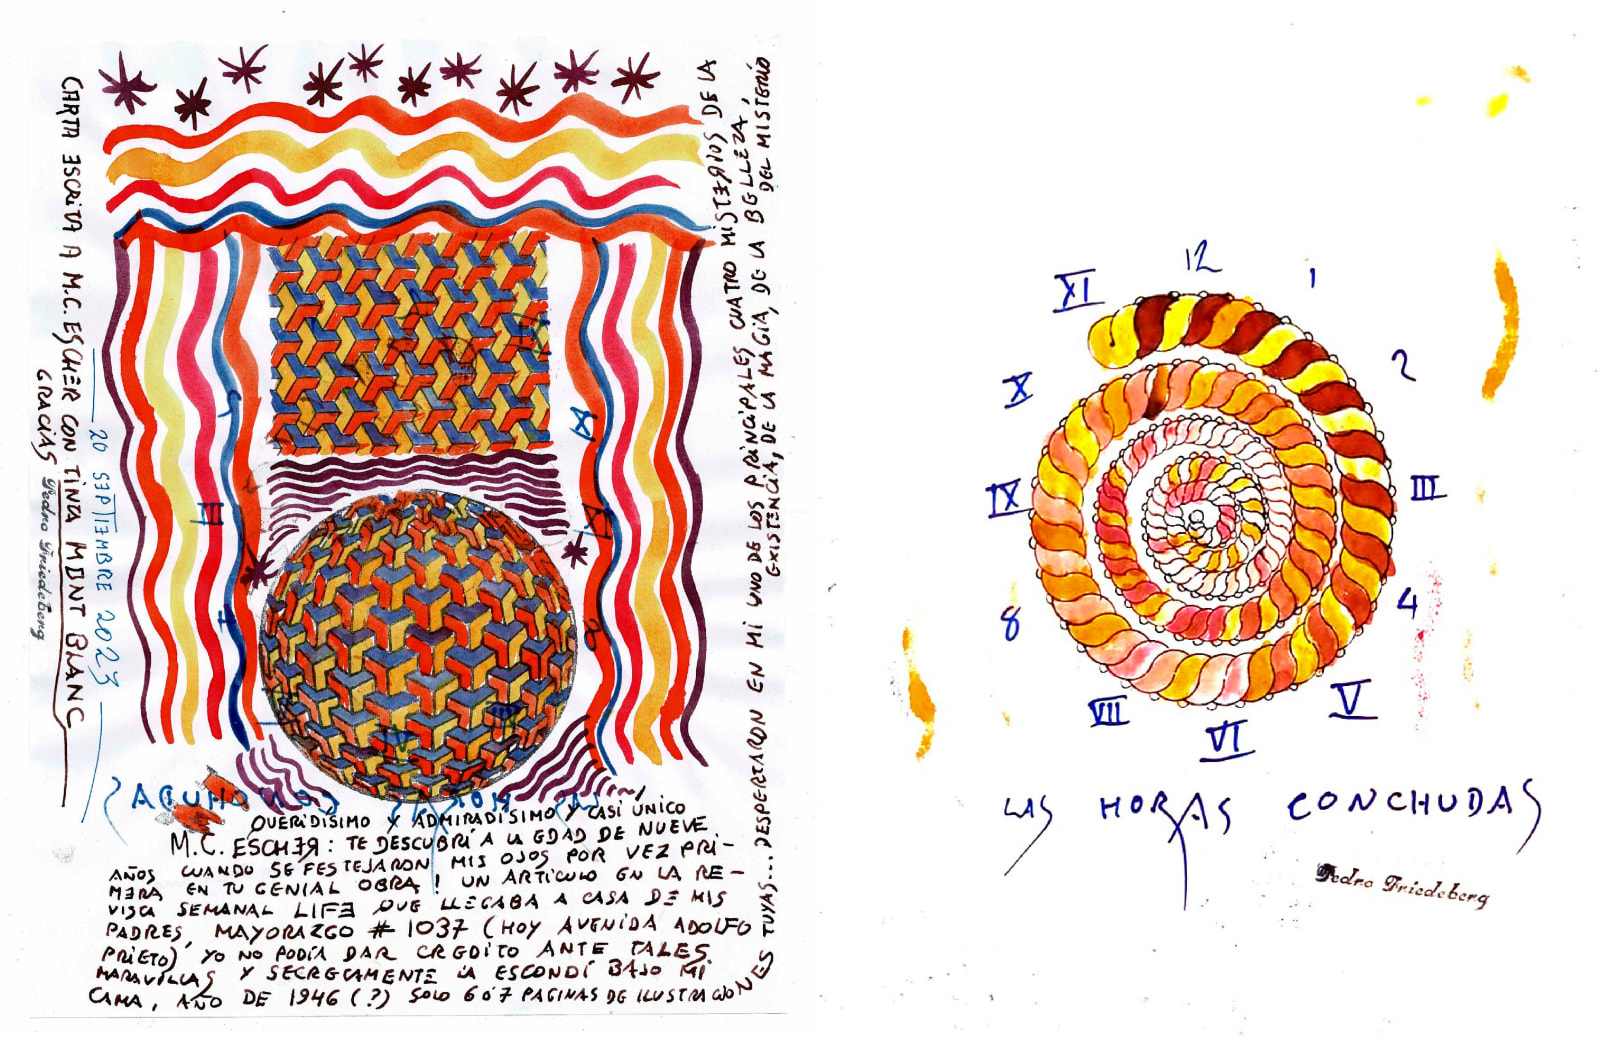 CARTA ESCRITA A M.C. ESCHER CON TINTA MONT BLANC
GRACIAS
Pedro Friedeberg
20 SEPTIEMBRE 2023
QUERIDÍSIMO Y ADMIRADÍSIMO Y CASI ÚNICO
M.C. ESCHER: TE DESCUBRÍ A LA EDAD DE NUEVE
AÑOS CUANDO SE FESTEJARON MIS OJOS POR VEZ PRI-
MERA EN TU GENIAL OBRA! UN ARTICULO EN LA RE-
VISTA SEMANAL LIFE QUE LLEGABA A CASA DE MIS
PADRES, MAYORAZGO # 1037 (HOY AVENIDA ADOLFO
PRIETO) YO NO PODÍA DAR CREDITO ANTE TALES
MARAVILLAS Y SECRETAMENTE LA ESCONDÍ BAJO MI
CAMA, AÑO DE 1946 (?) SOLO 6 Ó 7 PAGINAS DE ILUSTRACIONES
TUYAS... DESPERTARON EN MI UNO DE LOS PRINCIPALES CUATRO MISTERIOS DE LA
EXISTENCIA, DE LA MAGIA, DE LA BELLEZA,
DEL MISTERIO
12
1
2
III
4
V
VI
VII
8
IX
X
XI
LAS HORAS CONCHUDAS
Pedro Friedeberg